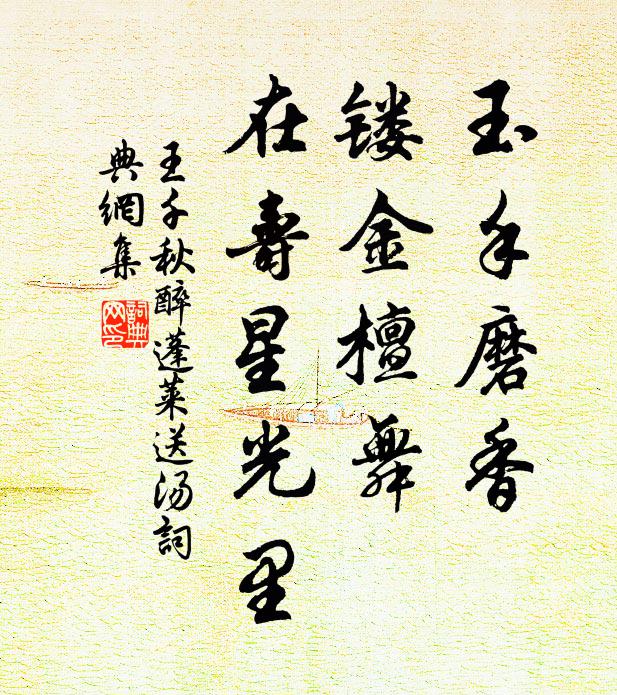 玉手磨香
镂金檀舞
在寿星光里
王千秋醉蓬莱送汤詞
典網集
詞典网印